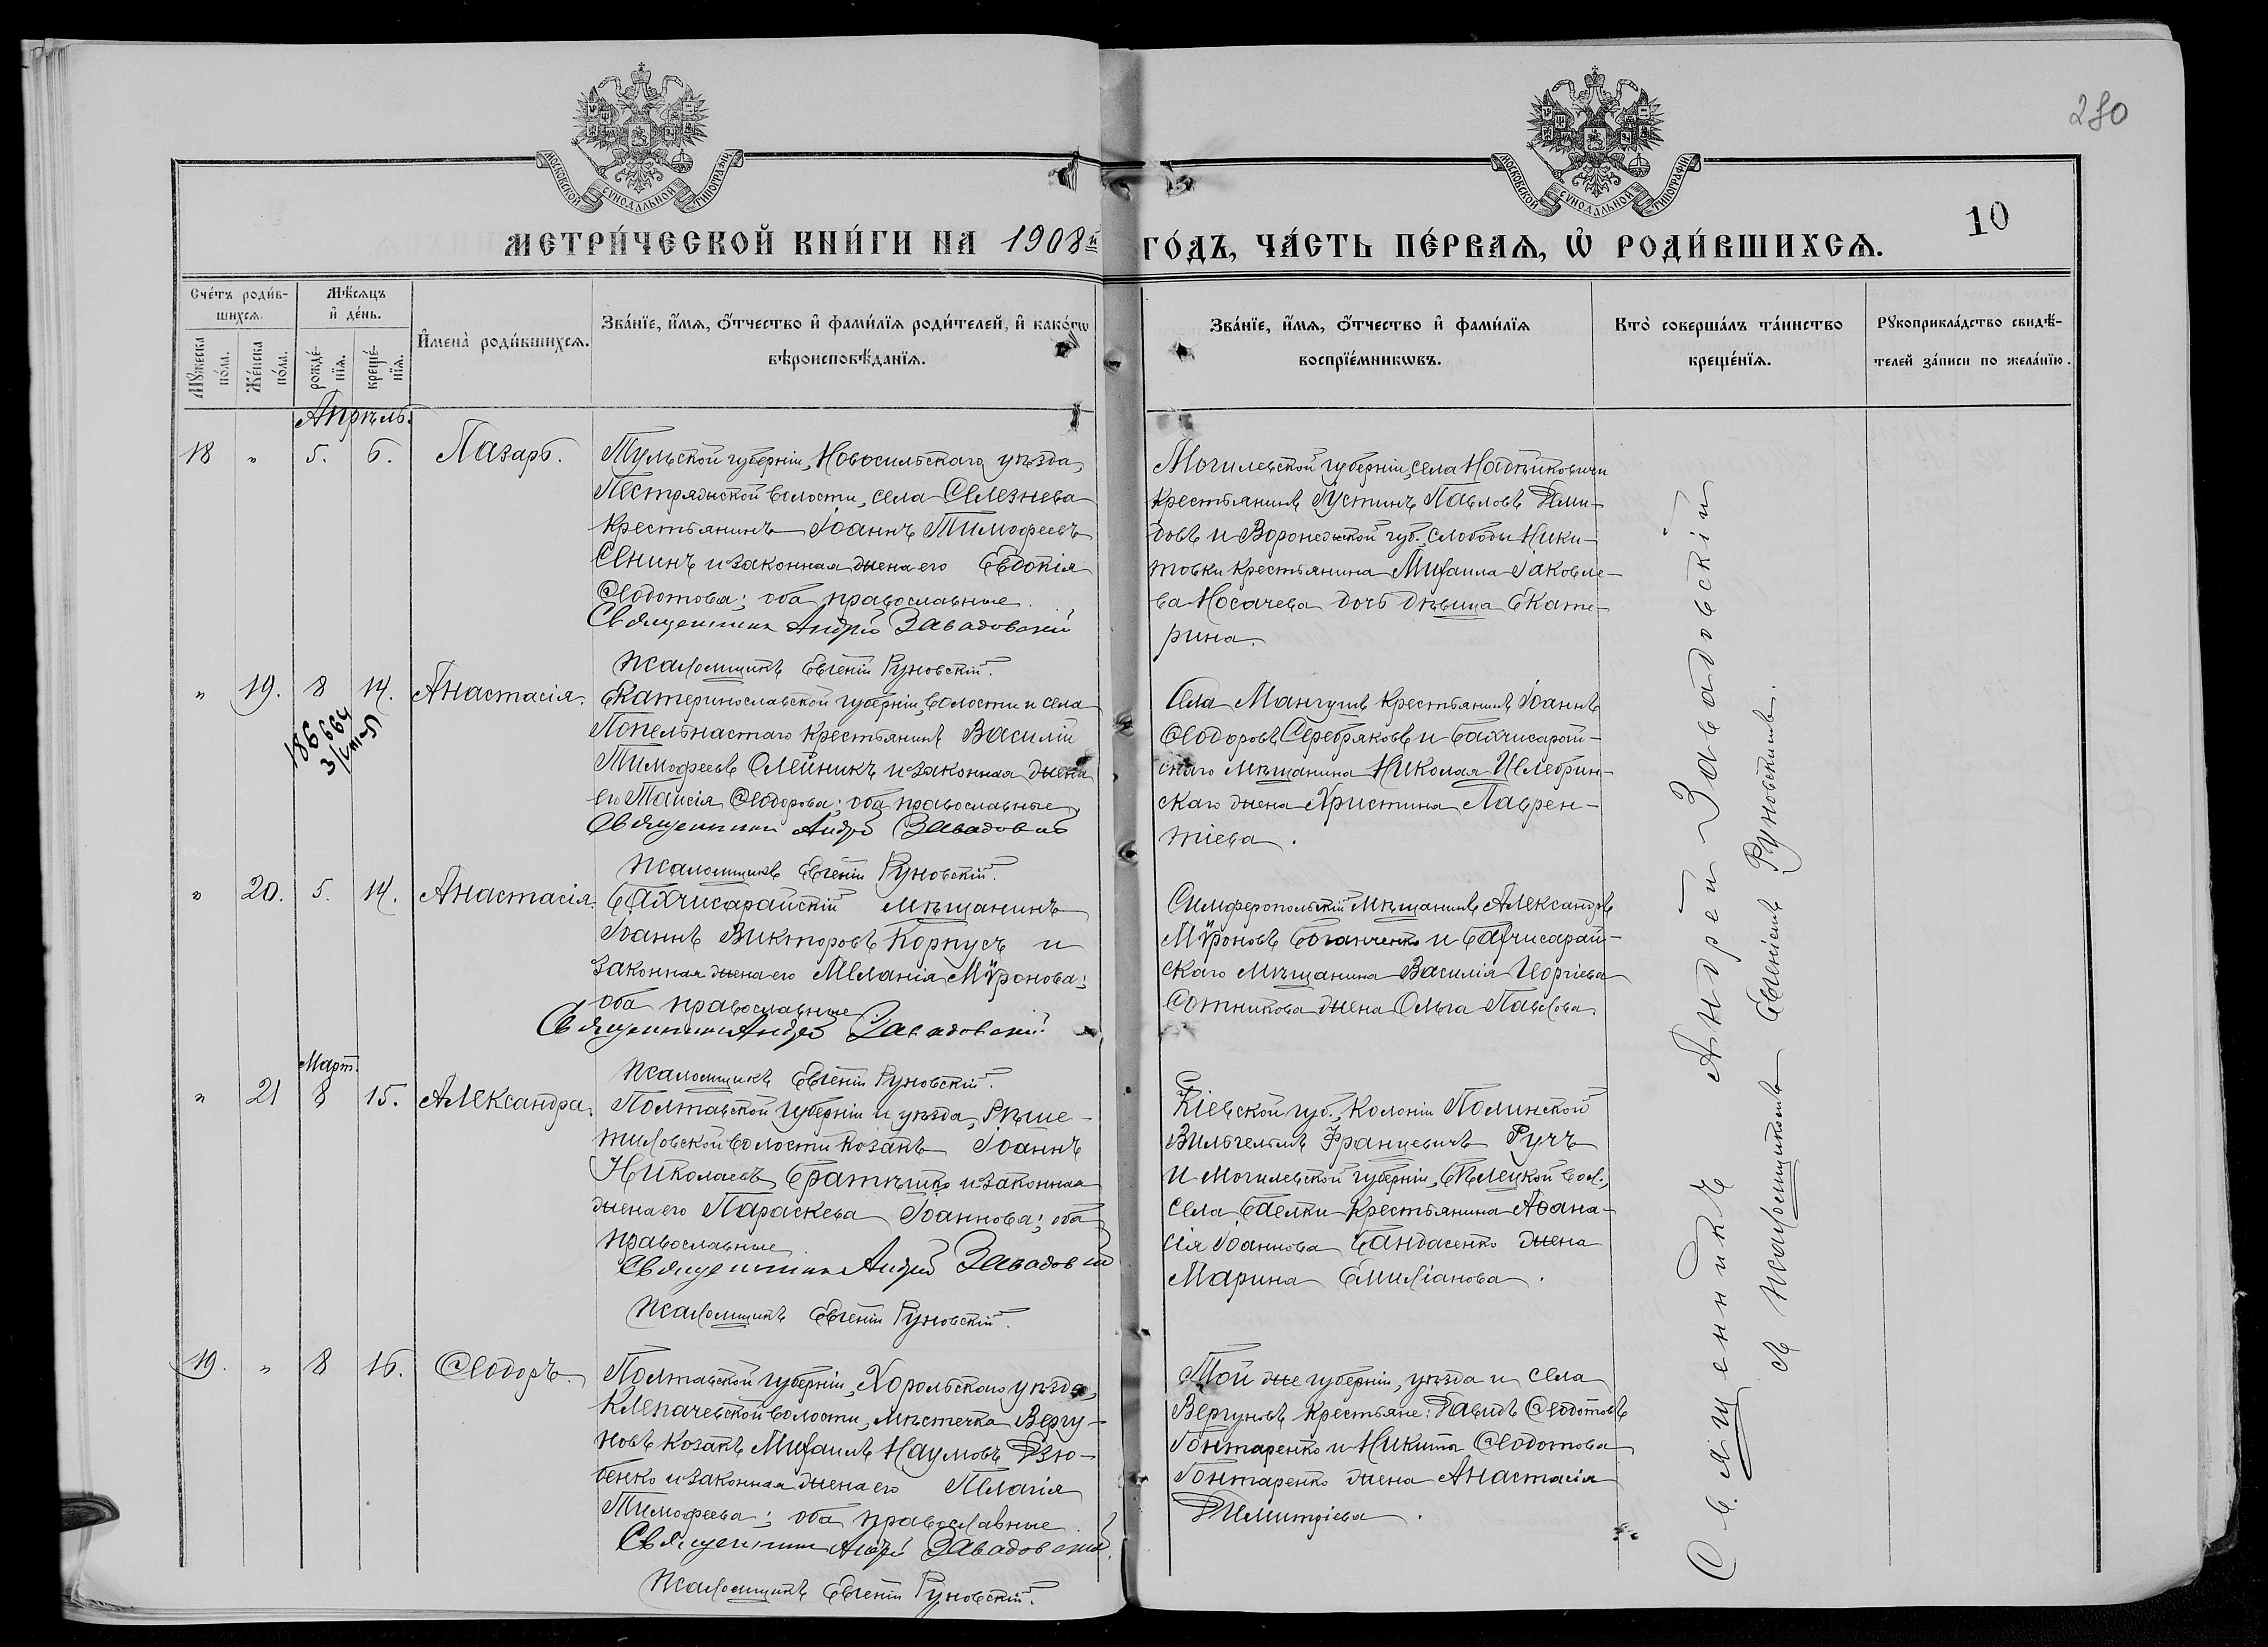 280
10
МОСКОВСКОЙ СѴНОДАЛЬНОЙ ТИПОГРАФІИ
МОСКОВСКОЙ СѴНОДАЛЬНОЙ ТИПОГРАФІИ
МЕТРИ́ЧЕСКОЙ КНИ́ГИ НА 1908й ГО́ДЪ, ЧА́СТЬ ПЕ́РВАѦ, Ѡ҆ РОДИ́ВШИХСѦ.
Сче́тъ роди́в-
шихсѧ.
Мꙋ́жеска по́ла.
Же́нска по́ла.
Мѣ́сѧцъ
и҆ де́нь.
рожде́-
нїѧ.
креще́-
нїѧ.
И҆мена̀ роди́вшихсѧ.
Зва́нїе, и҆́мѧ, ѻ҆́тчество и҆ фами́лїѧ роди́телей, и҆ како́гѡ
вѣроисповѣ́данїѧ.
Зва́нїе, и҆́мѧ, ѻ҆́тчество и҆ фами́лїѧ
воспрїе́мникѡвъ.
Кто̀ соверша́лъ та́инство
креще́нїѧ.
Рꙋкоприкла́дство свидѣ́-
телей за́писи по жела́нїю.
Апрѣль.
18 " 5. 6. Лазарь.
Тульской губерніи, Новосильскаго уѣзда,
волости, села Селезнева
крестьянинъ Іоаннъ Тимофеевъ
Сенинъ и законная жена его Евдокія
Ѳеодотова; оба православные.
Священникъ Андрей Завадовскій
Псаломщикъ Евгеній Руновскій.
Могилевской губерніи, села
крестьянинъ Іустинъ Павловъ Деми-
довъ и Воронежской губ., слободы Ники-
товки крестьянина Михаила Іаковле-
ва Носачева дочь дѣвица Екате-
рина.
" 19. 8 14. Анастасія.
186664
Екатеринославской губерніи, волости и села
Попельнастаго крестьянинъ Василій
Тимофеевъ Олейникъ и законная жена
его Таисія Ѳеодорова; оба православные
Священникъ Андрей Завадовскій
Псаломщикъ Евгеній Руновскій.
Села Мангушъ крестьянинъ Іоаннъ
Ѳеодоровъ Серебряковъ и Бахчисарай-
скаго мѣщанина Николая
скаго жена Христина Лаврен-
тіева.
" 20. 5. 14. Анастасія.
Бахчисарайскій мѣщанинъ
Іоаннъ Викторовъ Корпусъ и
законная жена его Меланія Мѵронова;
оба православные.
Священникъ Андрей Завадовскій
Псаломщикъ Евгеній Руновскій.
Симферопольскій мѣщанинъ Александръ
Мѵроновъ и Бахчисарай-
скаго мѣщанина Василія Георгіева
Сотникова жена Ольга Павлова.
Март.
" 21 8 15. Александра.
Полтавской губерніи и уѣзда, Рѣше-
тиловской волости козакъ Іоаннъ
Николаевъ Братѣшко и законная
жена его Параскева Іоаннова; оба
православные.
Священникъ Андрей Завадовскій
Псаломщикъ Евгеній Руновскій.
Кіевской губ., колоніи Полинской
Вильгельмъ ФранцевичъRučъ
и Могилевской губерніи, Бѣлецкой вол.,
села крестьянина Аѳана-
сія Іоаннова Бандасенко жена
Марина Емиліанова.
19. " 8 16. Ѳеодоръ.
Полтавской губерніи, Хорольскаго уѣзда,
Клепачевской волости, мѣстечка Вергу-
новъ козакъ Михаилъ Наумовъ Дзю-
бенко и законная жена его Пелагія
Тимофеева; оба православные.
Священникъ Андрей Завадовскій.
Псаломщикъ Евгеній Руновскій.
Той же губерніи, уѣзда и села
Вергуновъ крестьяне: Давидъ Ѳеодотовъ
Гонтаренко и Никиты Ѳеодотова
Гонтаренко жена Анастасія
Димитріева.
Священникъ Андрей Завадовскій
съ псаломщикомъ Евгеніемъ Руновскимъ.